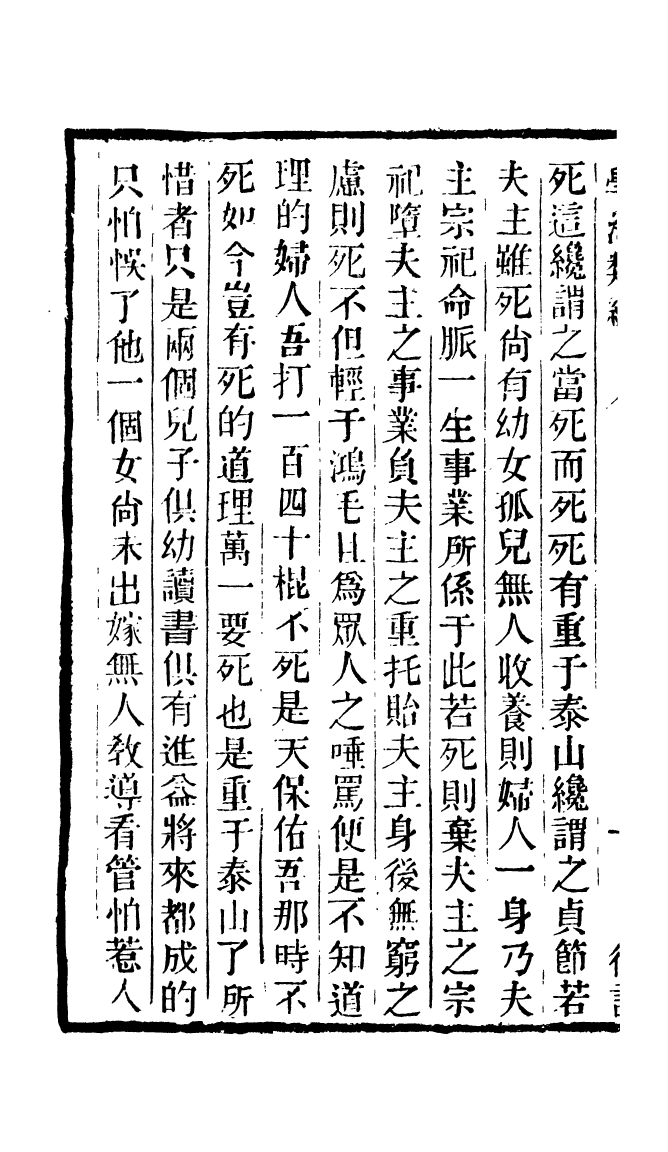 死這纔謂之當死而死死有重于泰山纔謂之貞節若
夫主雖死尚有幼女孤兒無人收養則婦人一身乃夫
主宗祀命脈一生事業所係于此若死則棄夫主之宗
祀墮夫主之事業負夫主之重托貽夫主身後無窮之
慮則死不但輕于鴻毛且為眾人之唾罵便是不知道
理的婦人吾打一百四十棍不死是天保佑吾那時不
死如今豈有死的道理萬一要死也是重于泰山了所
惜者只是兩個兒子俱幼讀書俱有進益將來都成的
只怕悞了他一個女尚未出嫁無人教導看管怕惹人